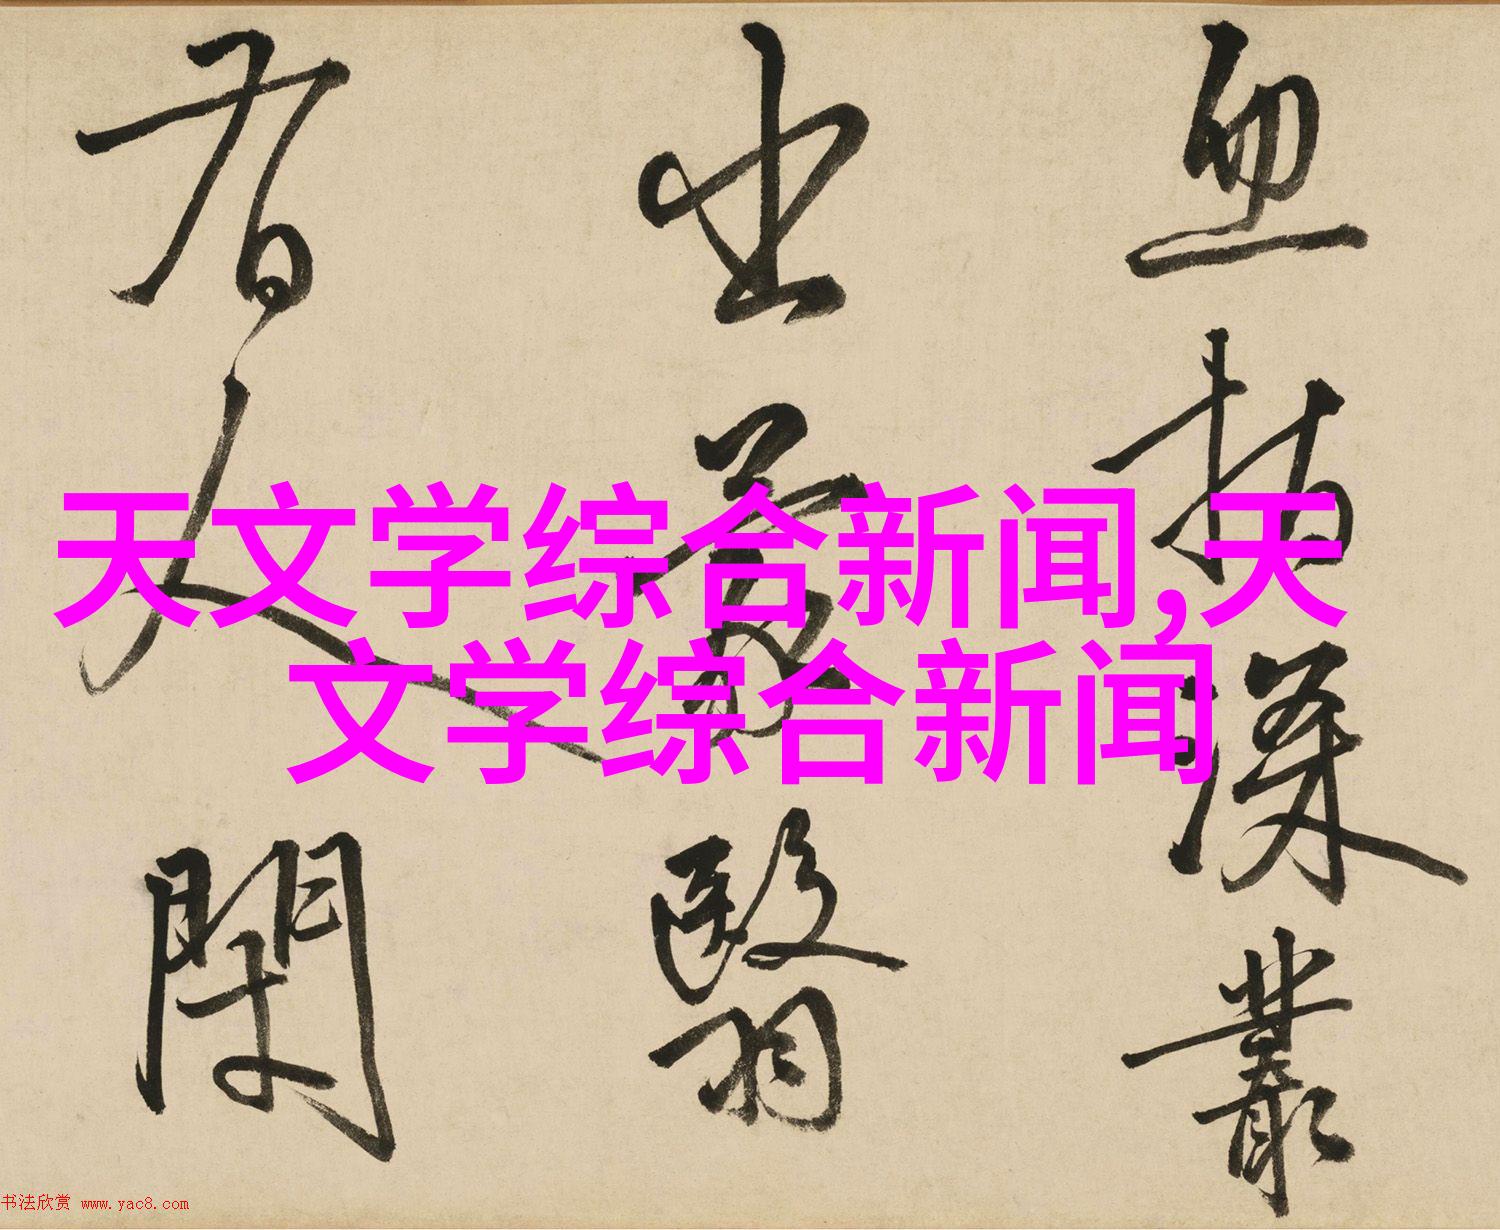 天文学综合新闻,天
文学综合新闻
血指深叢
出蒙翳
有人
书法欣赏 www.yac8.com